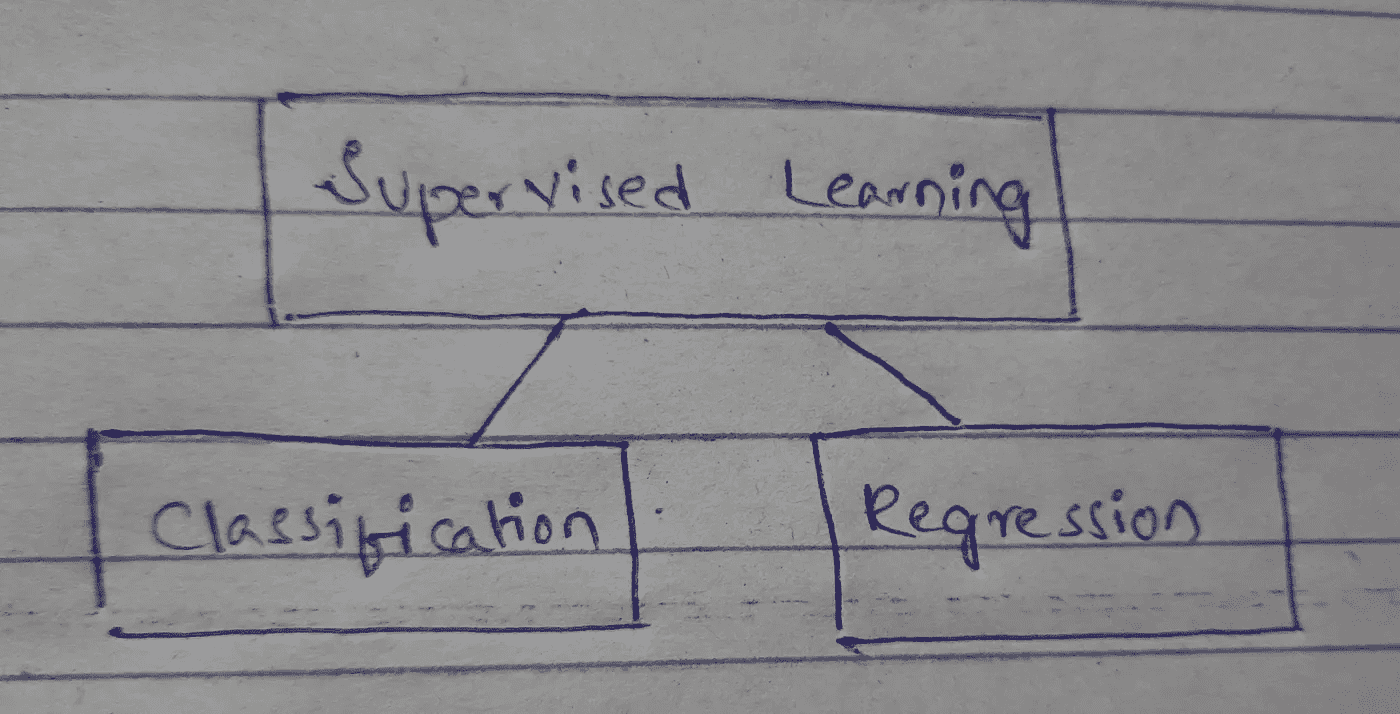 Supervised Learning
Classification
Regression